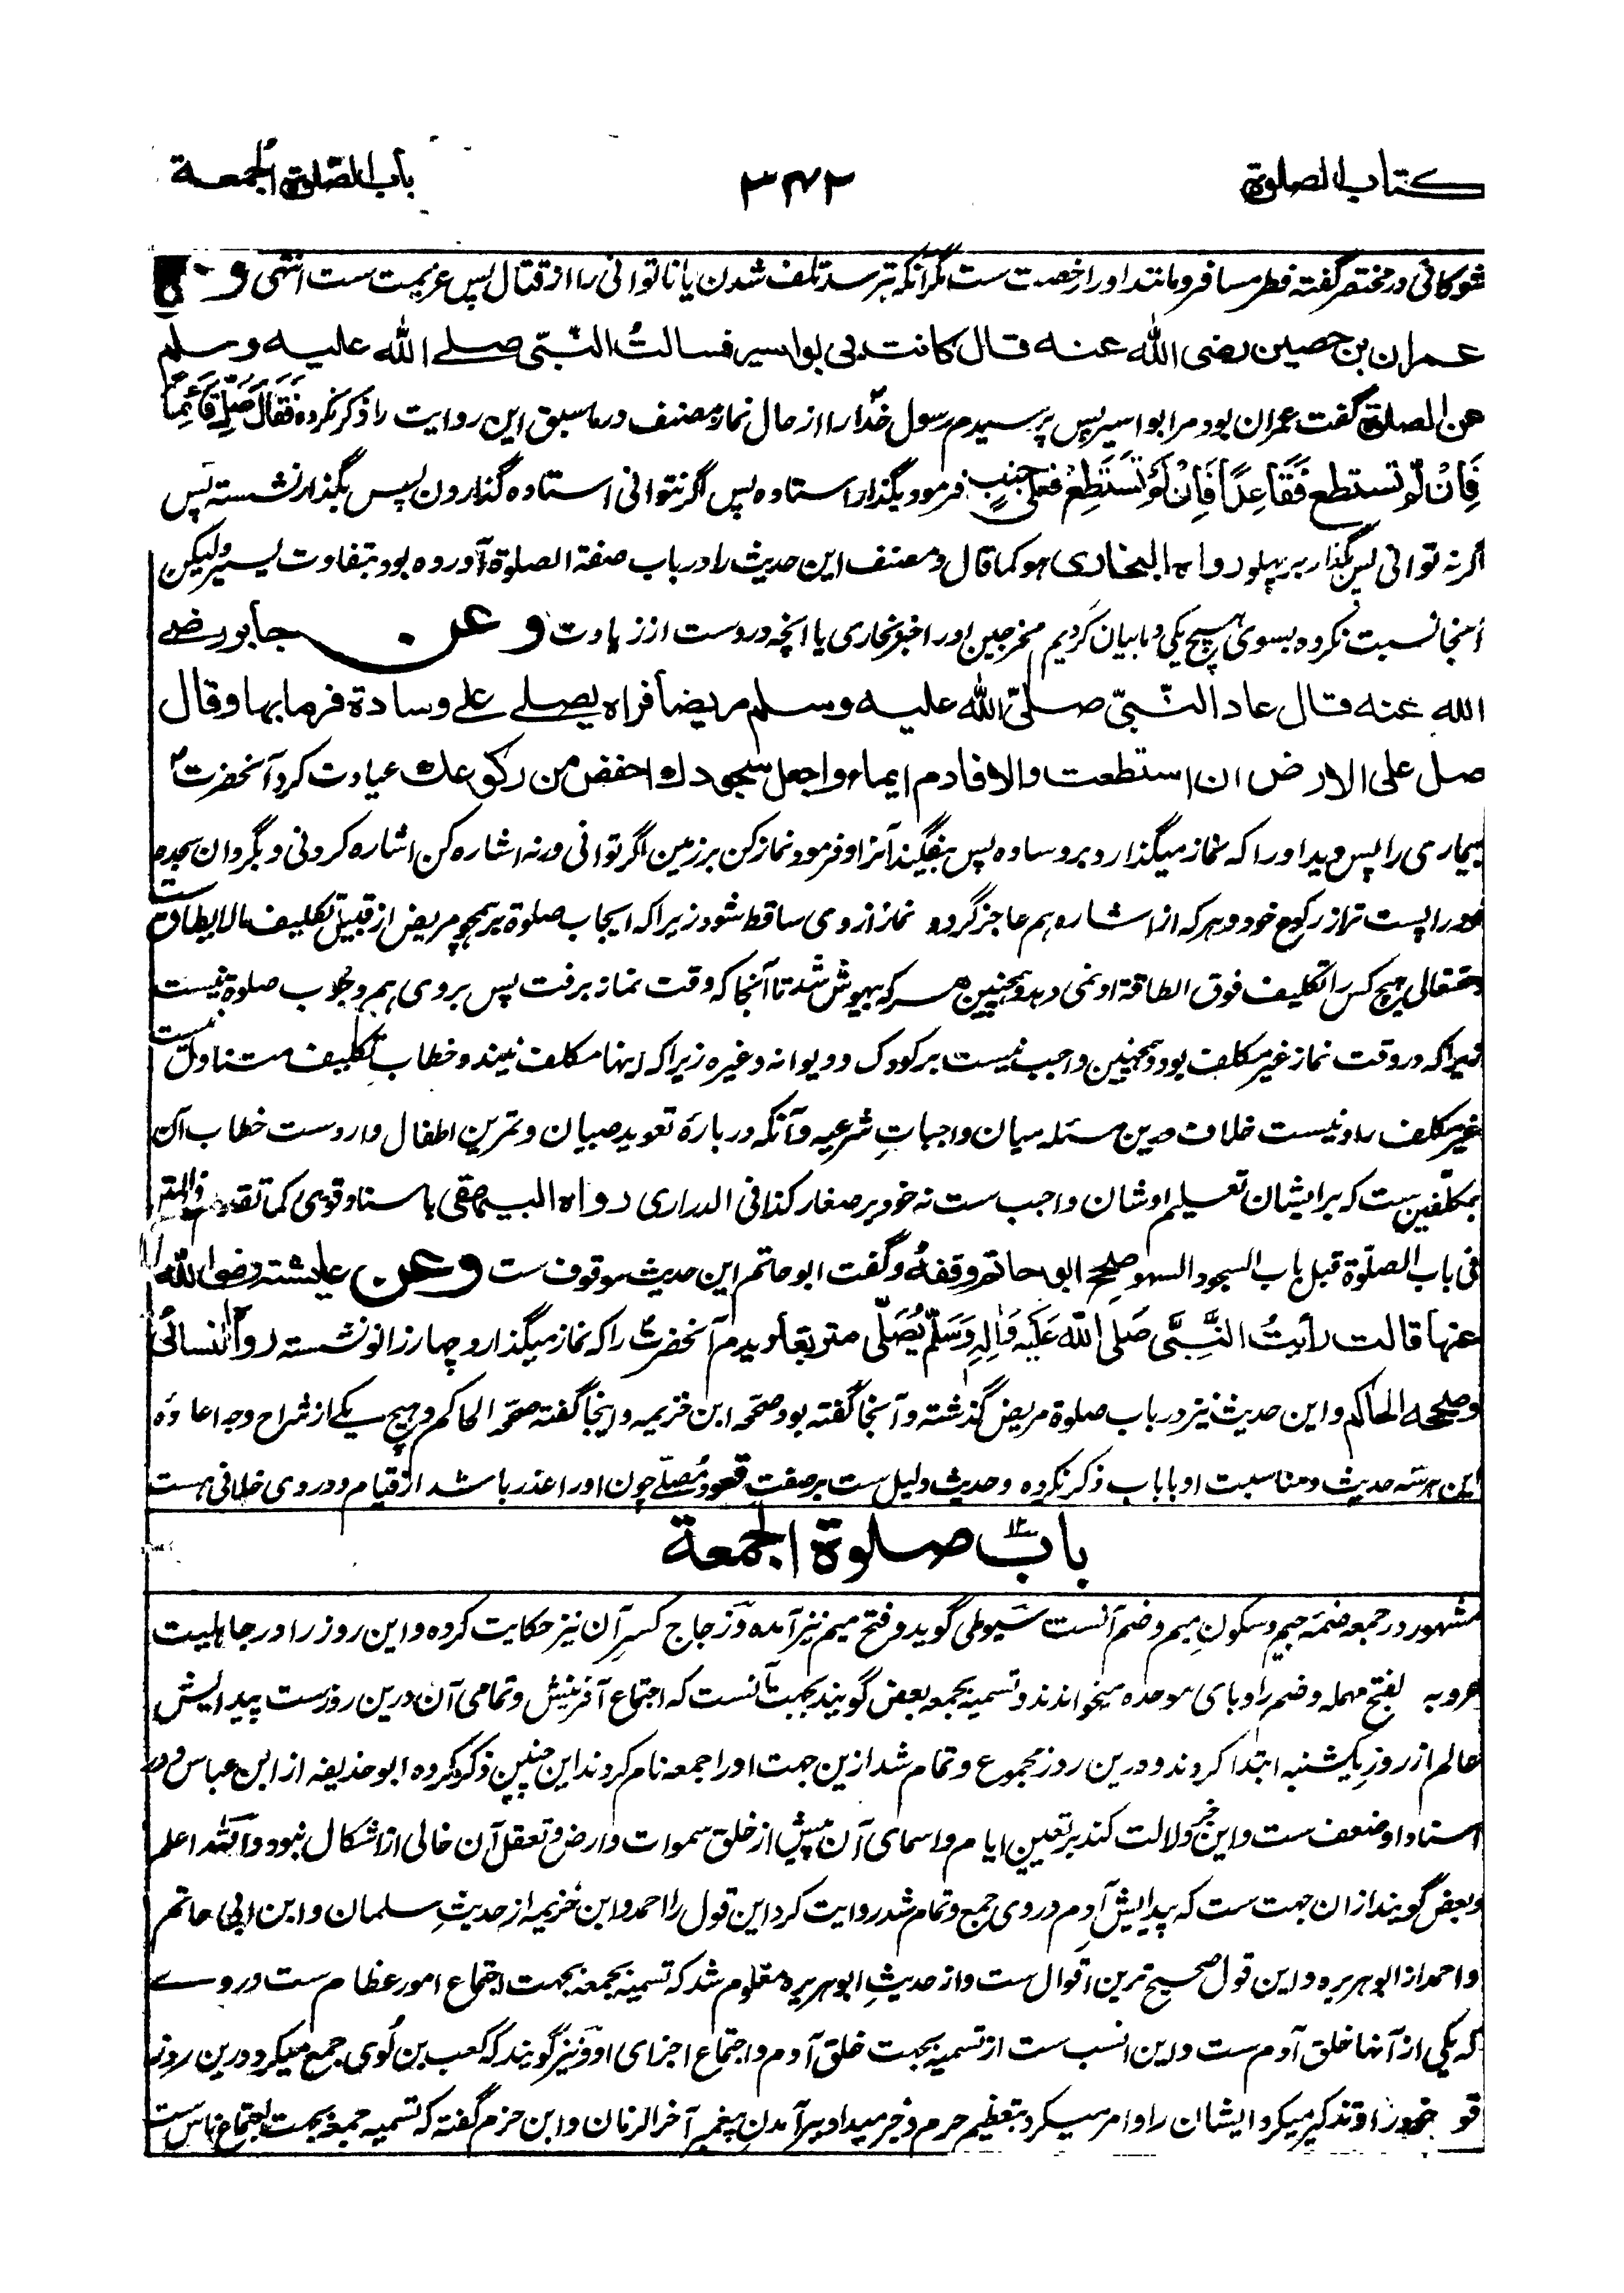 کتاب الصلوة
۳۴۲
باب الصلوة الجمعة
شوکانی در مختصر گفته فطر مسافر و مانند او را رخصت ست مگر آنکه بترسد تلف شدن یا ناتوانی را از قتال پس عزیمت ست انتهی و
عمران بن حصین رضی الله عنه قال کانت بی بواسیر فسالتُ النبّی صلے الله علیه وسلم
عن الصلوة گفت عمران بود مرا بواسیر پس پرسیدم رسول خدا را از حال نماز مصنف در ما سبق این روایت را ذکر نکرده فَقَالَ صَلِّ قَائِمًا
فَاِنْ لَّمْ تستطع فَقَاعِدًا فَاِنْ لَّمْ تَسْتَطِعْ فعلی جنبٍ فرمود بگذار استاده پس اگر نتوانی استاده گذاردن پس بگذار نشسته پس
اگر نه توانی پس بگذار بر پهلو رواه البخاری هو کما قال و مصنف این حدیث را در باب صفة الصلوة آورده بود بتفاوت یسیر ولیکن
آنجا نسبت نکرده بسوی هیچ یکی و ما بیان کردیم مخرجین او را اخبر بخاری یا آنچه دروست از زیادت وعن جابر رضے
الله عنه قال عاد النبّی صلّی الله علیه وسلم مریضا فراه یصلے علے وسادة فرما بها وقال
صل علی الارض ان استطعت والا فادم ایماء واجعل سجودك اخفض من رکوعك عیادت کرد آنحضرت
بیماری را پس دید او را که نماز میگذارد بر وساده پس بیفگند آنرا و فرمود نماز کن بر زمین اگر توانی ورنه اشاره کن اشاره کردنی و بگردان سجده
خود را پست تر از رکوع خود و هر که از اشاره هم عاجز گردد نماز از وی ساقط شود زیرا که ایجاب صلوة بر همچو مریض از قبیل تکلیف ما لا یطاق ست
وحقتعالی هیچ کس را تکلیف فوق الطاقة او نمی دهد و همچنین هر که بیهوش شد تا آنجا که وقت نماز برفت پس بر وی هم وجوب صلوة نیست
زیرا که در وقت نماز غیر مکلف بود و همچنین واجب نیست بر کودک و دیوانه و غیره زیرا که اینها مکلف نیند و خطاب تکلیف متناول نیست
غیر مکلف را و نیست خلاف درین مسئله میان واجباتِ شرعیه و آنکه دربارۀ تعوید صبیان و تمرین اطفال وارد ست خطاب آن
بمکلفین ست که بر ایشان تعلیم اوشان واجب ست نه خود بر صغار کذا فی الدراری رواه البیهقی باسناد قوی کما تقدم
فی باب الصلوة قبل باب السجود السهو صَحَّحَ ابو حاتم وقفهُ و گفت ابو حاتم این حدیث موقوف ست وعن عایشة رضی الله
عنها قالت رأیتُ النَّبِیَّ صَلی الله عَلَیْه وَاٰلِهٖ وَسَلّمَ یُصَلّی متربعًا دیدم آنحضرت را که نماز میگذارد چهار زانو نشسته رواه النسائی
وصححه الحاکم و این حدیث نیز در باب صلوة مریض گذشته و آنجا گفته بود صححه ابن خزیمه و اینجا گفته صححه الحاکم و هیچ یکے از شراح وجه اعاده
این هر سه حدیث و مناسبت او با باب ذکر نکرده و حدیث دلیل ست بر صفتِ قعودِ مُصلّے چون او را عذر باشد از قیام و در وی خلافی هست
باب صلوة الجمعة
مشهور در جمعه ضمّهٔ جیم و سکونِ میم و ضم آنست سُیوطی گوید و فتح میم نیز آمده و زجاج کسرِ آن نیز حکایت کرده و این روز را در جاهلیت
عروبه بفتح مهمله و ضم را و بای موحده میخواندند و تسمیه بجمعه بعض گویند بجهت آنست که اجتماع آفرینش و تمامی آن درین روزست پیدایش
عالم از روز یکشنبه ابتدا کردند و درین روز مجموع و تمام شد ازین جهت او را جمعه نام کردند این چنین ذکر کرده ابو حذیفه از ابن عباس و در
اسناد او ضعف ست و این خبر دلالت کند بر تعیین ایام و اسمای آن پیش از خلق سموات و ارض و تعقل آن خالی از اشکال نبود والله اعلم
و بعض گویند ازان جهت ست که پیدایش آدم در وی جمع و تمام شد روایت کرد این قول را احمد و ابن خزیمه از حدیثِ سلمان و ابن ابی حاتم
و احمد از ابوهریره و این قول صحیح ترین اقوال ست و از حدیثِ ابوهریره معلوم شد که تسمیه بجمعه بجهت اجتماع امور عظام ست در وے
که یکی از آنها خلق آدم ست و این انسب ست از تسمیه بجهت خلق آدم و اجتماع اجزای او و نیز گویند که کعب بن لُوی جمع میکرد درین روز
قوم خود را و تذکیر میکرد ایشان را و امر میکرد بتعظیم حرم و خبر میداد ببر آمدن پیغمبر آخر الزمان و ابن حزم گفته که تسمیه جمعه بجهت اجتماع ناس ست